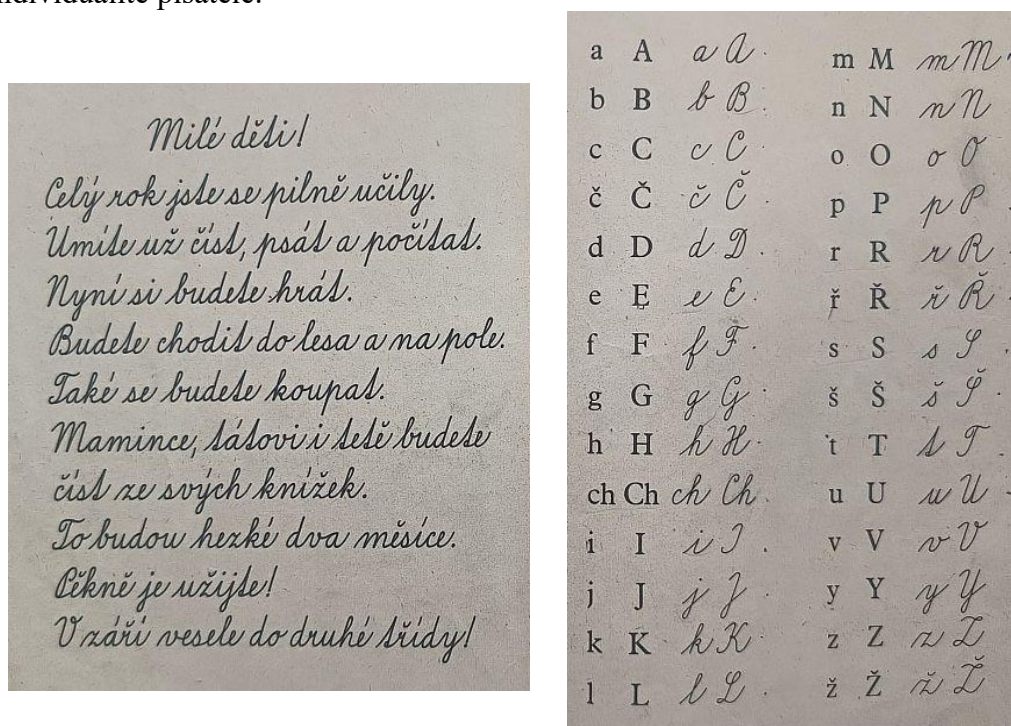 pisatele.
Milé děti!
Celý rok jste se pilně učily.
Umíte už číst, psát a počítat.
Nyní si budete hrát.
Budete chodit do lesa a na pole.
Také se budete koupat.
Mamince, tátovi i tetě budete
číst ze svých knížek.
To budou hezké dva měsíce.
Pěkně je užijte!
V září vesele do druhé třídy!
a A a A
b B b B
c C c C
č Č č Č
d D d D
e E e E
f F f F
g G g G
h H h H
ch Ch ch Ch
i I i I
j J j J
k K k K
l L l L
m M m M
n N n N
o O o O
p P p P
r R r R
ř Ř ř Ř
s S s S
š Š š Š
t T t T
u U u U
v V v V
y Y y Y
z Z z Z
ž Ž ž Ž